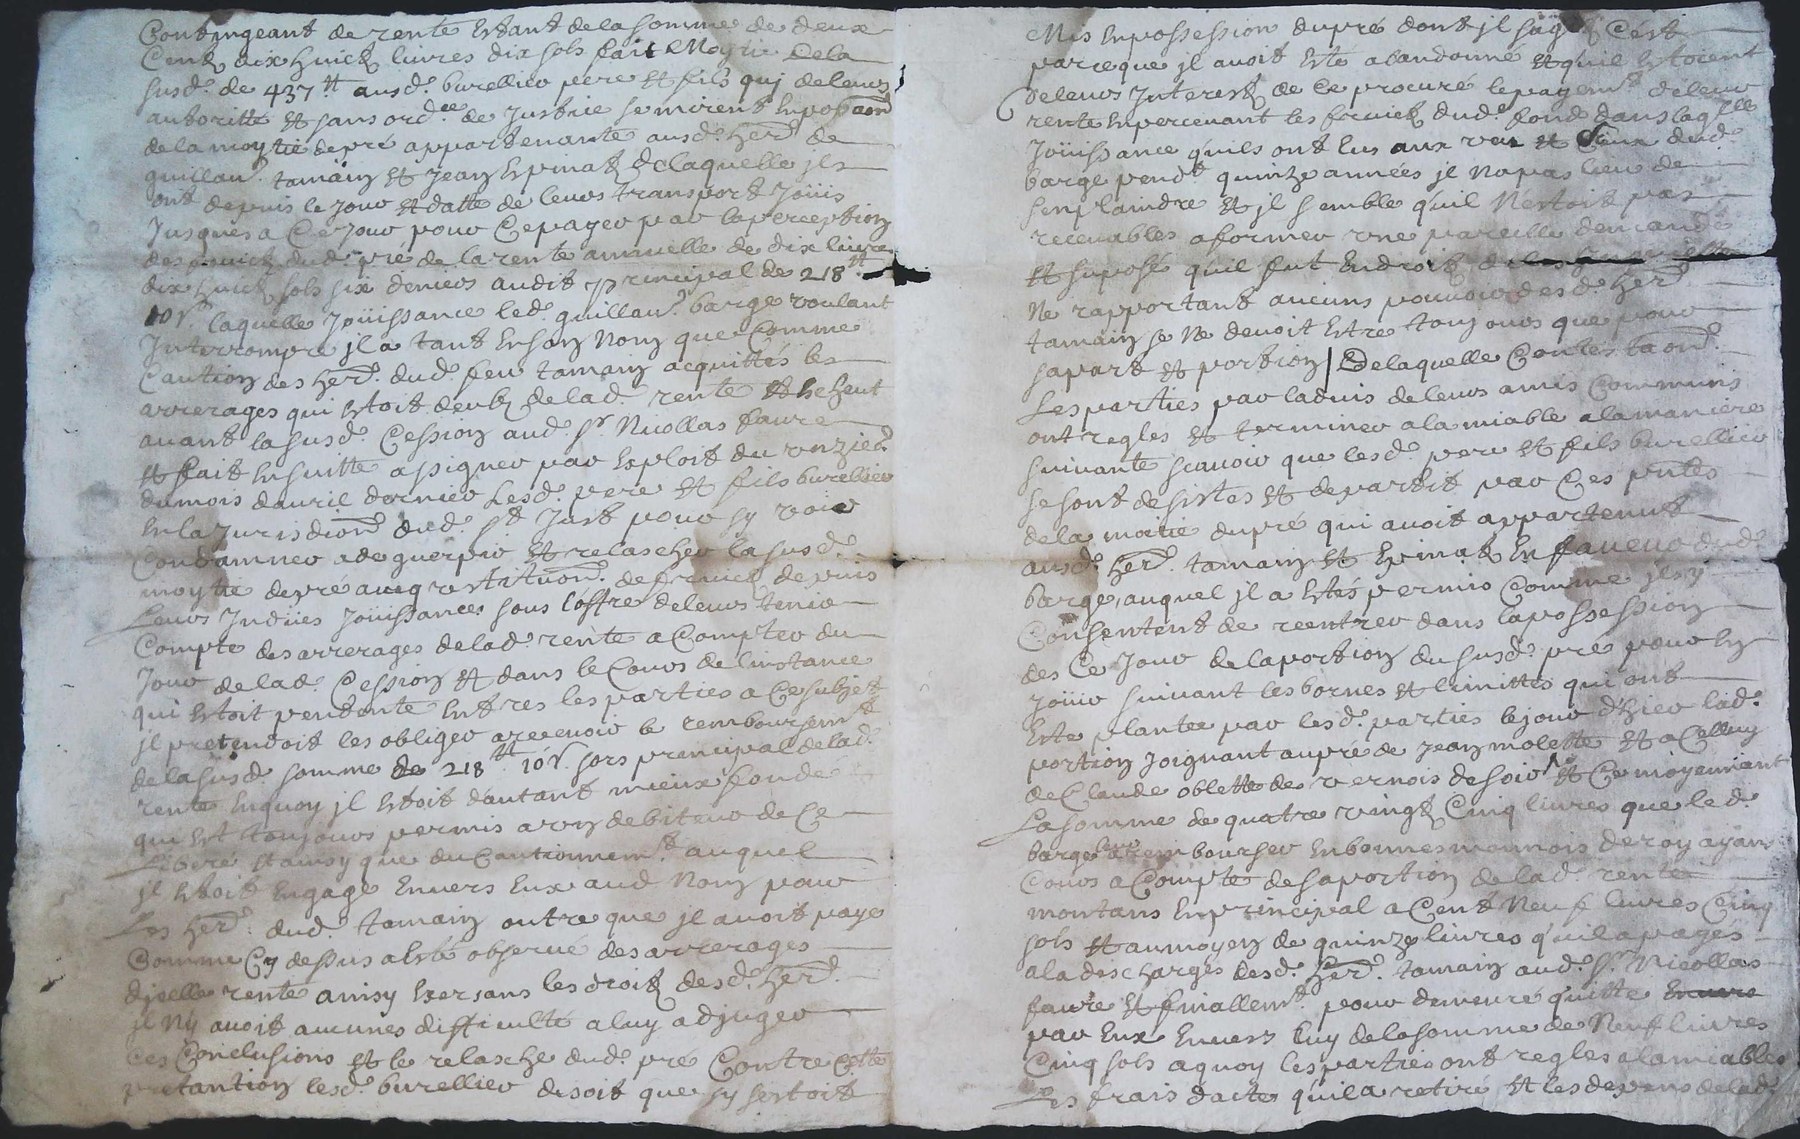 Contingeant de rente Estant de la somme de deux
Cent dix huict livres dix sols fait Moytie De la
susd. de 437 tt ausd. burellier pere et fils qui de leurs
authoritte et sans ordce de Justice se mirent En poson
de la moytié de pré appartenante ausd. herd. de
guillau. tamain et Jean Epinat De laquelle jls
ont depuis le jour et datte de leurs transport Joüis
Jusques a Ce jour pour Ce payer par la perception
des fruicts dud. pré de la rente annuelle de dix livres
dix huict sols six deniers audit principal de 218 tt
10 s. laquelle Joüissance led. guillau. barge voulant
Interrompre jl a tant En son Nom que Comme
Caution des herd. dud. feu tamain acquittés les
arrerages qui Estoit deubz de lad. rente
avant la susd. Cession aud. sr Nicollas faure
et fait Ensuitte assigner par Exploit du unzie.
du mois d'avril dernier Lesd. pere et fils burellier
En la Jurisdion dud. st Just pour sy voir
Condamner a deguerpir et relascher la susd.
moytie de pré avecq restituon. de fruicts depuis
Leurs Indües Joüissances sous l'offre de leurs tenir
Compte des arrerages de lad. rente a Compter du
Jour de lad. Cession et dans le Cours de l'instance
qui Estoit pendante Entres les parties a Ce subjet
jl pretendoit les obliger a recevoir le remboursemt
de la susd. somme de 218 tt 10 s. sors principal de lad.
rente En quoy jl Estoit d'autant mieux fondé
qui Est toujours permis a un debiteur de Ce
Liberé et ainsy que du Cautionnemt. auquel
jl Estoit Engagé Envers Eux aud. Nom pour
Les herd. dud. tamain outre que jl avoit payé
Comme Cy dessus a Esté observé des arrerages
d'jcelle rente ainsy Exersans les droits desd. herd.
jl Ny avoit aucunes difficulté a luy adjuger
Ces Conclusions et le relasche dud. pré Contre Cette
pretantion lesd. burellier disoit que sy s'estoit
Mis En possession du pré dont jl s'agit C'est
parce que jl avoit Esté abandonné et quil Estoient
de leurs Interest de Ce procuré le payemt. de leur
rente En percevant les fruicts dud. fond dans laqlle
Joüissance qu'ils ont Eus aux veu et Sceux dud.
barge pendt. quinze années jl Na pas lieu de
s'en plaindre et jl semble qu'il N'estoit pas
recevables a former une pareille demande
et suposé qu'il fut En droit
Ne rapportant aucuns pouvoir desd. herd.
tamain se Ne devoit Estre toujours que pour
sa part et portion / De laquelle Contestaon.
Les parties par l'advis de leurs amis Communs
ont regles et terminer a l'amiable a la maniere
suivante scavoir que lesd. pere et fils burellier
se sont desistes et departit par Ces pntes
de la moitié du pré qui avoit appartenut
ausd. herd. tamain et Epinat En faveur dud.
barge, auquel jl a Estés permis Comme jls y
Consentent de reentrer dans la possession
des Ce Jour de la portion du susd. pré pour En
joüir suivant les bornes et limittes qui ont
Este plantée par lesd. parties le jour d'hier lad.
portion Joignant au pré de jean molette et a Celluy
de Claude oblette des vernois de soir et Ce moyennant
La somme de quatre vingt Cinq livres que le d.
barge leur a rembourser En bonnes monnois de roy ayans
Cours a Compte de sa portion de lad. rente
montans En principal a Cent Neuf livres Cinq
sols et au moyen de quinze livres qu'il a payés
a la descharges desd. herd. tamain aud. sr. Nicollas
faure et finallemt. pour demeuré quitte Envers
par Eux Envers luy de la somme de Neuf livres
Cinq sols a quoy les parties ont regles a l'amiable
Les frais d'acte qu'il a retiré et les depens de lad.